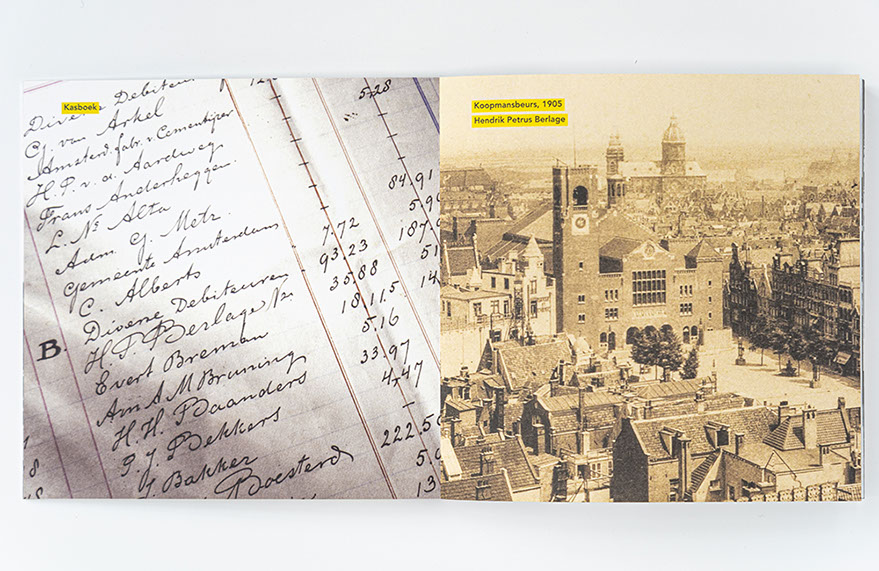 Kasboek
Diverse Debiteuren
G. van Arkel
Amsterd. fabr. v. Cementijzer
H. P. v. d. Aardweg
Frans Anderheggen
L. Ns Alta
Adm. G. Metz.
Gemeente Amsterdam
C. Alberts
Diverse Debiteuren
B.
H. P. Berlage Nz.
Evert Breman
Arn A M Bruning
H. H. Baanders
P. J. Bekkers
J. Bakker
Boesterd
5.28
84.91
7.72
93.23
35.88
18 11.5
5.16
33.97
4.47
222.50
Koopmansbeurs, 1905
Hendrik Petrus Berlage